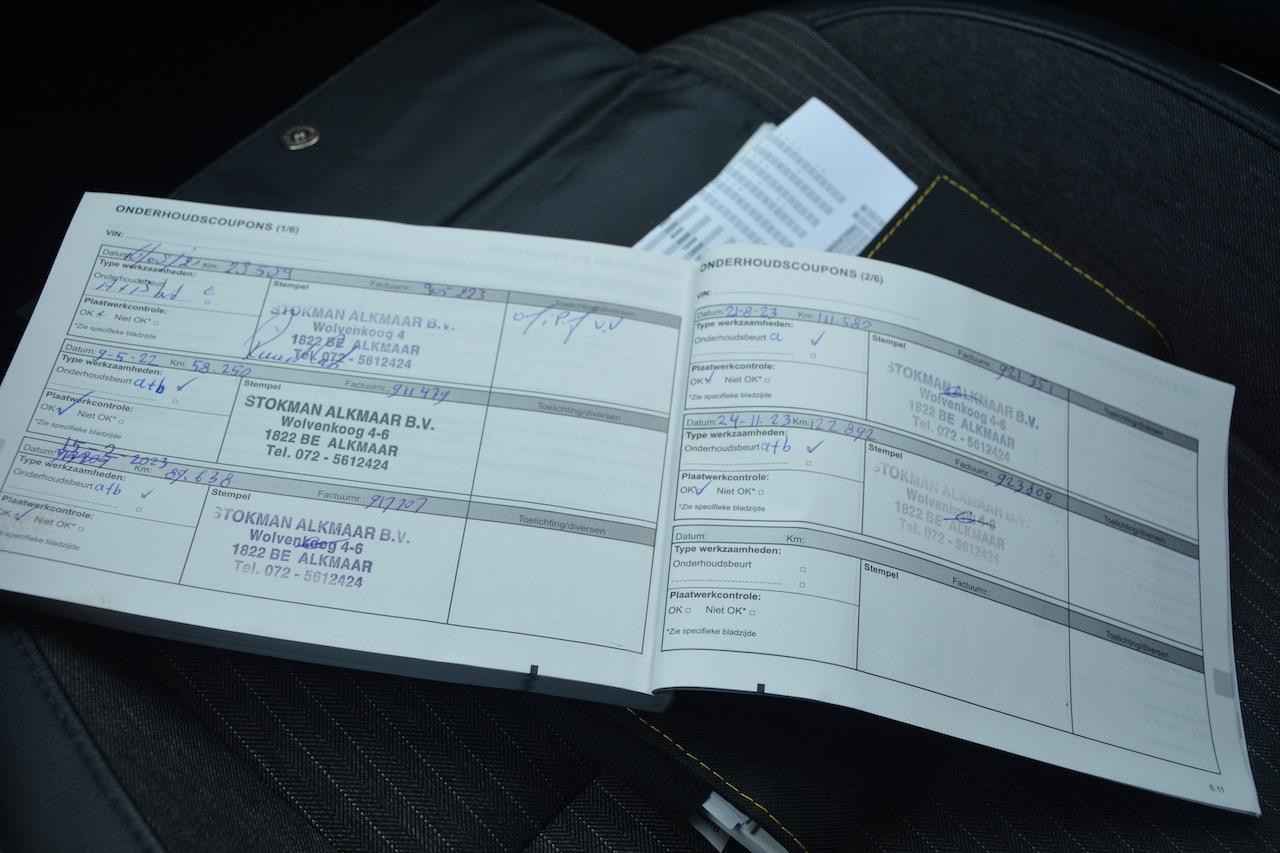 ONDERHOUDSCOUPONS (1/6)
VIN:
Datum: Km: 23509
Type werkzaamheden:
Onderhoudsbeurt
Stempel Factuurnr.:
Toelichting/diversen
STOKMAN ALKMAAR B.V.
Wolvenkoog 4
1822 BE ALKMAAR
Tel. 072 - 5612424
Plaatwerkcontrole:
OK Niet OK*
*Zie specifieke bladzijde
Datum: 9-5-22 Km: 58.250
Type werkzaamheden:
Onderhoudsbeurt a+b
Stempel Factuurnr.: 911479
Toelichting/diversen
STOKMAN ALKMAAR B.V.
Wolvenkoog 4-6
1822 BE ALKMAAR
Tel. 072 - 5612424
Plaatwerkcontrole:
OK Niet OK*
*Zie specifieke bladzijde
Datum: 15-2-2023 Km: 89.638
Type werkzaamheden:
Onderhoudsbeurt a+b
Stempel Factuurnr.: 917707
Toelichting/diversen
STOKMAN ALKMAAR B.V.
Wolvenkoog 4-6
1822 BE ALKMAAR
Tel. 072 - 5612424
Plaatwerkcontrole:
OK Niet OK*
*Zie specifieke bladzijde
ONDERHOUDSCOUPONS (2/6)
VIN:
Datum: 21-8-23 Km: 111.582
Type werkzaamheden:
Onderhoudsbeurt a
Stempel Factuurnr.: 921351
Toelichting/diversen
STOKMAN ALKMAAR B.V.
Wolvenkoog 4-6
1822 BE ALKMAAR
Tel. 072 - 5612424
Plaatwerkcontrole:
OK Niet OK*
*Zie specifieke bladzijde
Datum: 24-11-23 Km: 122.892
Type werkzaamheden:
Onderhoudsbeurt a+b
Stempel Factuurnr.: 923808
Toelichting/diversen
STOKMAN ALKMAAR B.V.
Wolvenkoog 4-6
1822 BE ALKMAAR
Tel. 072 - 5612424
Plaatwerkcontrole:
OK Niet OK*
*Zie specifieke bladzijde
Datum: Km:
Type werkzaamheden:
Onderhoudsbeurt
Stempel Factuurnr.:
Toelichting/diversen
Plaatwerkcontrole:
OK Niet OK*
*Zie specifieke bladzijde
6.11